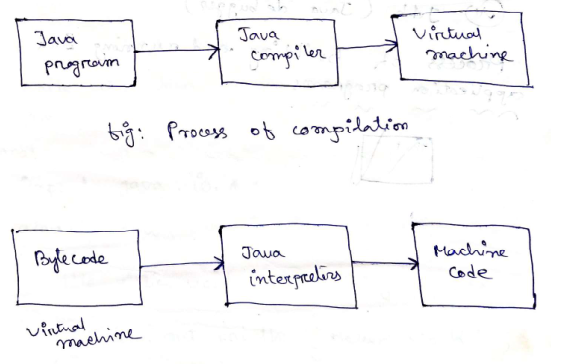 Java
program
Java
compiler
Virtual
machine
fig: Process of compilation
Bytecode
Java
interpreters
Machine
code
Virtual
machine